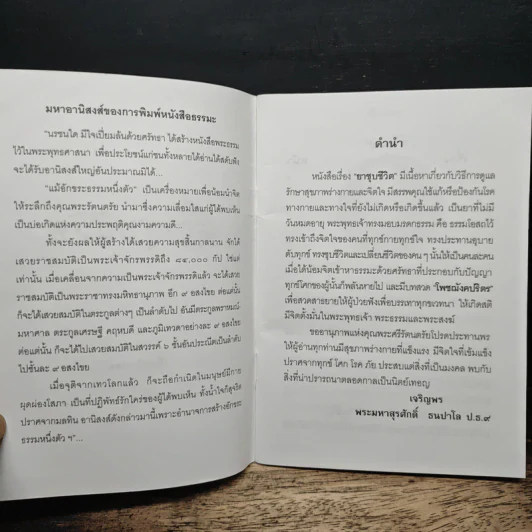 มหาอานิสงส์ของการพิมพ์หนังสือธรรมะ
"นรชนใด มีใจเปี่ยมล้นด้วยศรัทธา ได้สร้างหนังสือพระธรรม
ไว้ในพระพุทธศาสนา เพื่อประโยชน์แก่ชนทั้งหลายได้อ่านได้สดับฟัง
จะได้รับอานิสงส์ใหญ่อันประมาณมิได้...
"แม้อักขระธรรมหนึ่งตัว" เป็นเครื่องหมายเพื่อน้อมนำจิต
ให้ระลึกถึงคุณพระรัตนตรัย นำมาซึ่งความเลื่อมใสแก่ผู้ได้พบเห็น
เป็นบ่อเกิดแห่งความประพฤติคุณงามความดี...
ทั้งจะยังผลให้ผู้สร้างได้เสวยความสุขสิ้นกาลนาน จักได้
เสวยราชสมบัติเป็นพระเจ้าจักรพรรดิถึง ๘๔,๐๐๐ กัป ใช่แต่
เท่านั้น เมื่อเคลื่อนจากความเป็นพระเจ้าจักรพรรดิแล้ว จะได้เสวย
ราชสมบัติเป็นพระราชาทรงมหิทธานุภาพ อีก ๙ อสงไขย ต่อแต่นั้น
ก็จะได้เสวยสมบัติในตระกูลต่างๆ เป็นลำดับไป อันมีตระกูลพราหมณ์
มหาศาล ตระกูลเศรษฐี คฤหบดี และภูมิเทวดาอย่างละ ๙ อสงไขย
ต่อแต่นั้น ก็จะได้ไปเสวยสมบัติในสวรรค์ ๖ ชั้นอันประณีตเป็นลำดับ
ไปชั้นละ ๙ อสงไขย
เมื่อจุติจากเทวโลกแล้ว ก็จะถือกำเนิดในมนุษย์มีกาย
ผุดผ่องโสภา เป็นที่ปฏิพัทธ์รักใคร่ของผู้ได้พบเห็น ทั้งน้ำใจก็สุจริต
ปราศจากมลทิน อานิสงส์ดังกล่าวมานี้เพราะอำนาจการสร้างอักขระ
ธรรมหนึ่งตัว ฯ"...
คำนำ
หนังสือเรื่อง "ยาชุบชีวิต" มีเนื้อหาเกี่ยวกับวิธีการดูแล
รักษาสุขภาพร่างกายและจิตใจ มีสรรพคุณใช้แก้หรือป้องกันโรค
ทางกายและทางใจที่ยังไม่เกิดหรือเกิดขึ้นแล้ว เป็นยาที่ไม่มี
วันหมดอายุ พระพุทธเจ้าทรงมอบมรดกธรรม คือ ธรรมโอสถไว้
ทรงเข้าถึงจิตใจของคนที่ทุกข์กายทุกข์ใจ ทรงประทานอุบาย
ดับทุกข์ ทรงชุบชีวิตและเปลี่ยนชีวิตของคน ๆ นั้นให้เป็นคนละคน
เมื่อได้น้อมจิตเข้าหาธรรมะด้วยศรัทธาที่ประกอบกับปัญญา
ทุกข์โศกของผู้นั้นก็พลันสลายไป และมีบทสวด 'โพชฌังคปริตร'
เพื่อสวดสาธยายให้ผู้ป่วยฟังเพื่อบรรเทาทุกขเวทนา ให้เกิดสติ
มีจิตตั้งมั่นในพระพุทธเจ้า พระธรรมและพระสงฆ์
ขออานุภาพแห่งคุณพระศรีรัตนตรัยโปรดประทานพร
ให้ผู้อ่านทุกท่านมีสุขภาพร่างกายที่แข็งแรง มีจิตใจที่เข้มแข็ง
ปราศจากทุกข์ โศก โรค ภัย ประสบแต่สิ่งที่เป็นมงคล พบกับ
สิ่งที่น่าปรารถนาตลอดกาลเป็นนิตย์เทอญ
เจริญพร
พระมหาสุรศักดิ์ ธนปาโล ป.ธ.๙